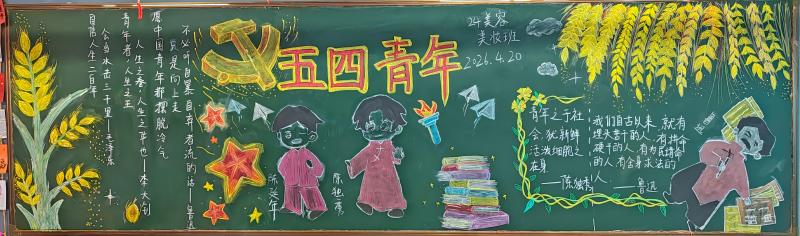 自信人生二百年
会当水击三千里——毛泽东
青年者,人生之王
人生之春,人生之华也——李大钊
愿中国青年都摆脱冷气
只是向上走
不必听自暴自弃者流的话——鲁迅
五四青年
24美容
美妆班
2026.4.20
陈延年
陈独秀
青年之于社
会,犹新鲜
活泼细胞之
在身
——陈独秀
“我们自古以来,就有
埋头苦干的人,有拼命
硬干的人,有为民请命
的人,有舍身求法的
人
——鲁迅